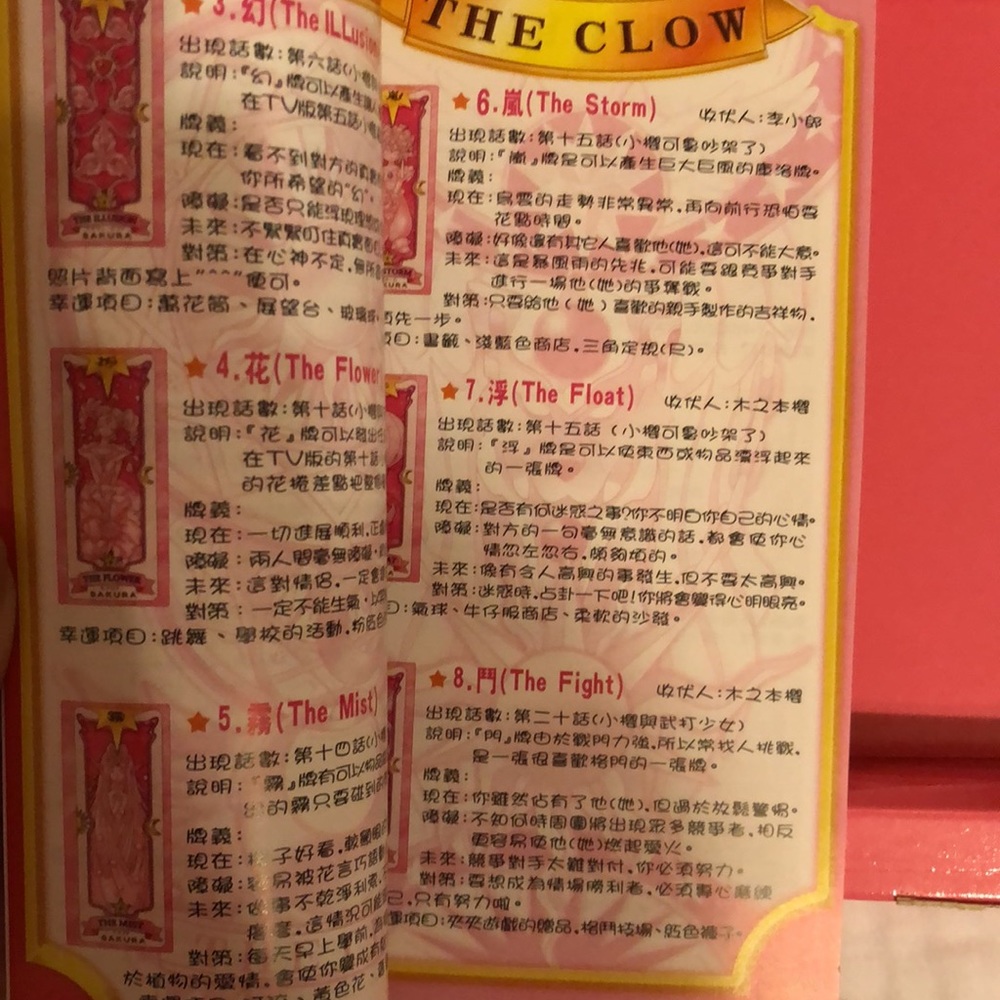 THE CLOW
3.幻(The ILLusion
出現話數:第六話(小櫻
說明:『幻』牌可以產生
在TV版第五話小
牌義:
現在:看不到對方的真
你所希望的"幻".
障礙:是否只能浮現
未來:不緊緊叮住真實
對策:在心神不定.無所
照片背面寫上"^^^"便可。
幸運項目:萬花筒、展望台、玻璃
THE ILLUSION
SAKURA
4.花(The Flower
出現話數:第十話(小
說明:『花』牌可以發出
在TV版的第十話
的花捲差點把整
牌義:
現在:一切進展順利.正
障礙:兩人間毫無障礙.
未來:這對情侶.一定會
對策:一定不能生氣.以
幸運項目:跳舞、學校的活動.粉紅色
THE FLOWER
SAKURA
5.霧(The Mist)
出現話數:第十四話(小
說明:『霧』牌有可以物品
出的霧只要碰到
牌義:
現在:子好看.較
障礙:容易被花言巧語
未來:做事不乾淨利索.
這情況可能
對策:每天早上學前.
於植物的愛情.會使你變成有
黃色花、
THE MIST
SAKURA
6.嵐(The Storm) 收伏人:李小郎
出現話數:第十五話(小櫻可魯吵架了)
說明:『嵐』牌是可以產生巨大巨風的庫洛牌。
牌義:
現在:烏雲的走勢非常異常.再向前行恐怕要
花點時間。
障礙:好像還有其它人喜歡他(她).這可不能大意。
未來:這是暴風雨的先兆.可能要跟競爭對手
進行一場他(她)的爭奪戰。
對策:只要給他(她)喜歡的親手製作的吉祥物.
先一步。
項目:書籤、淺藍色商店.三角定規(尺)。
STORM
KURA
7.浮(The Float) 收伏人:木之本櫻
出現話數:第十五話(小櫻可魯吵架了)
說明:『浮』牌是可以使東西或物品漂浮起來
的一張牌。
牌義:
現在:是否有何迷惑之事?你不明白你自己的心情。
障礙:對方的一句毫無意識的話.都會使你心
情忽左忽右.頗夠煩的。
未來:像有令人高興的事發生.但不要太高興。
對策:迷惑時.占卦一下吧!你將會變得心明眼亮。
目:氣球、牛仔服商店、柔軟的沙發。
8.鬥(The Fight) 收伏人:木之本櫻
出現話數:第二十話(小櫻與武打少女)
說明:『鬥』牌由於戰鬥力強.所以常找人挑戰.
是一張很喜歡格鬥的一張牌。
牌義:
現在:你雖然佔有了他(她).但過於放鬆警惕。
障礙:不知何時周圍將出現眾多競爭者.相反
更容易使他(她)燃起愛火。
未來:競爭對手太難對付.你必須努力。
對策:要想成為情場勝利者.必須專心磨練
己.只有努力啦。
運項目:夾夾遊戲的贈品.格鬥技場、紅色褲子。